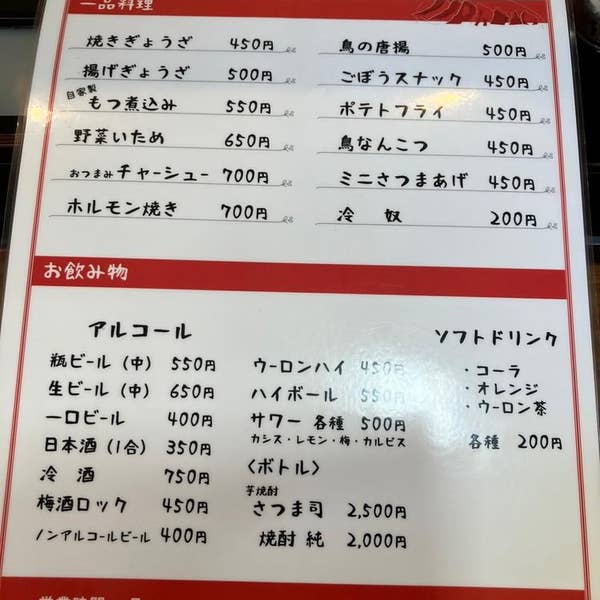 一品料理
焼きぎょうざ 450円
揚げぎょうざ 500円
自家製
もつ煮込み 550円
野菜いため 650円
おつまみチャーシュー 700円
ホルモン焼き 700円
鳥の唐揚 500円
ごぼうスナック 450円
ポテトフライ 450円
鳥なんこつ 450円
ミニさつまあげ 450円
冷 奴 200円
お飲み物
アルコール
瓶ビール (中) 550円
生ビール (中) 650円
一口ビール 400円
日本酒 (1合) 350円
冷 酒 750円
梅酒ロック 450円
ノンアルコールビール 400円
ウーロンハイ 450円
ハイボール 550円
サワー 各種 500円
カシス・レモン・梅・カルピス
〈ボトル〉
芋焼酎
さつま司 2,500円
焼酎 純 2,000円
ソフトドリンク
・コーラ
・オレンジ
・ウーロン茶
各種 200円